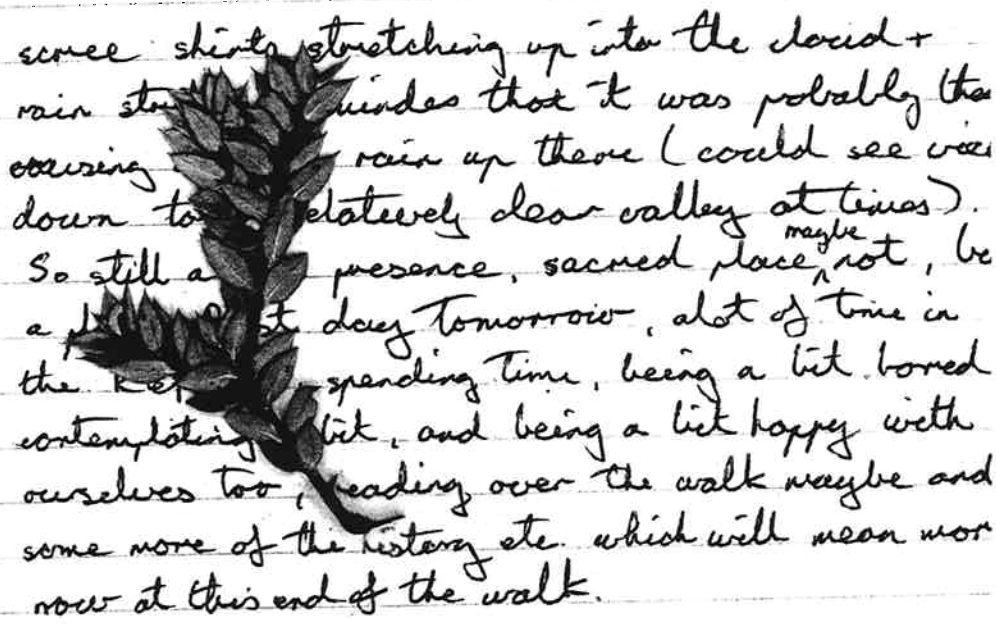 scree skirts stretching up into the cloud +
rain that it was probably the
causing rain up there (could see
down to relatively clear valley at times).
So still a presence, sacred place, maybe not, be
a day tomorrow, alot of time in
the spending time, being a bit bored
contemplating bit, and being a bit happy with
ourselves too, reading over the walk maybe and
some more of the history etc. which will mean mor
now at this end of the walk.